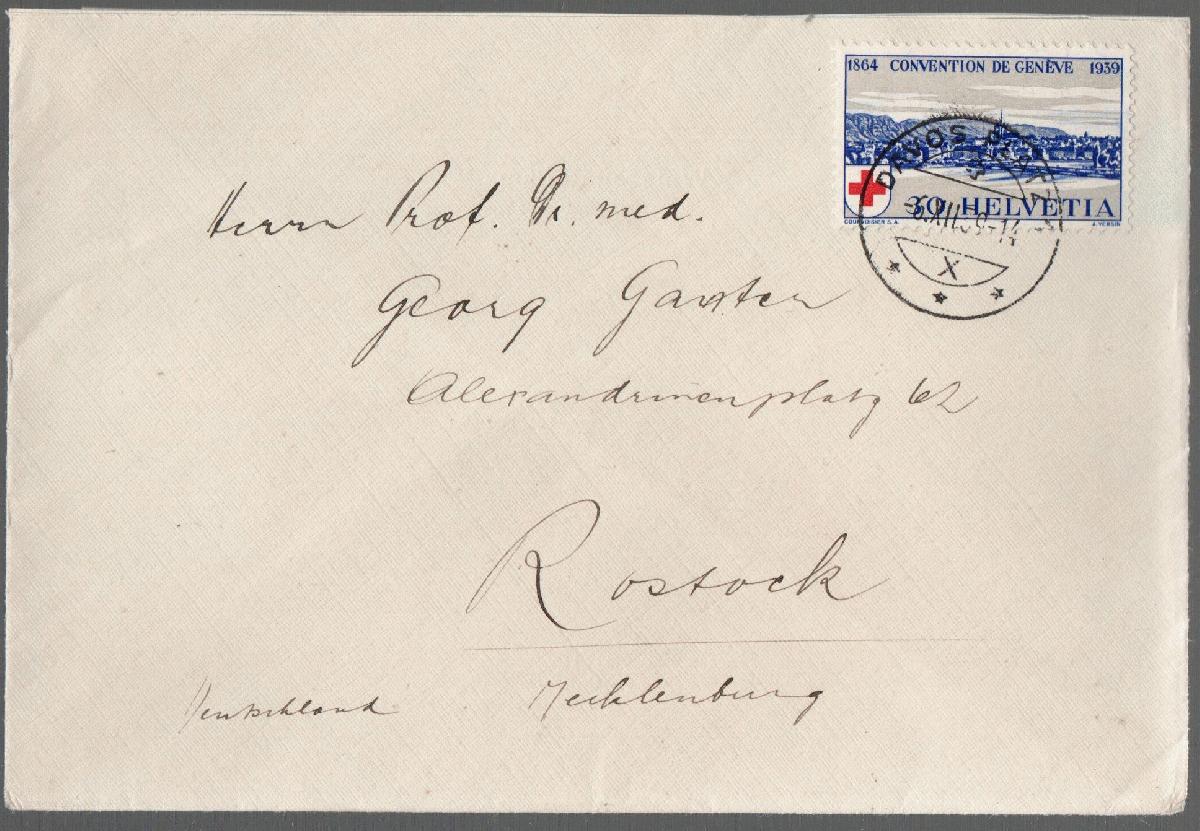 1864 CONVENTION DE GENÈVE 1939
30 HELVETIA
COURVOISIER S.A.
DAVOS PLATZ
X
Herrn Prof. Dr. med.
Georg Ganter
Alexandrinenplatz 62
Rostock
Deutschland Mecklenburg